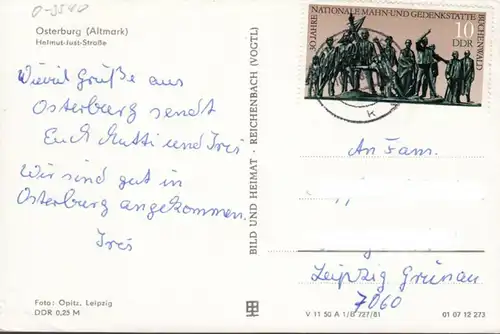 0-3540
Osterburg (Altmark)
Helmut-Just-Straße
Wieviel Grüße aus
Osterburg sendt
Euch Mutti und Iris
Wir sind gut in
Osterburg angekommen.
Iris
Foto: Opitz, Leipzig
DDR 0,25 M
BILD UND HEIMAT · REICHENBACH (VOGTL)
30 JAHRE NATIONALE MAHN- UND GEDENKSTÄTTE
BUCHENWALD
10
DDR
K
An Fam.
Leipzig Grünau
7060
V 11 50 A 1/B 727/81
01 07 12 273